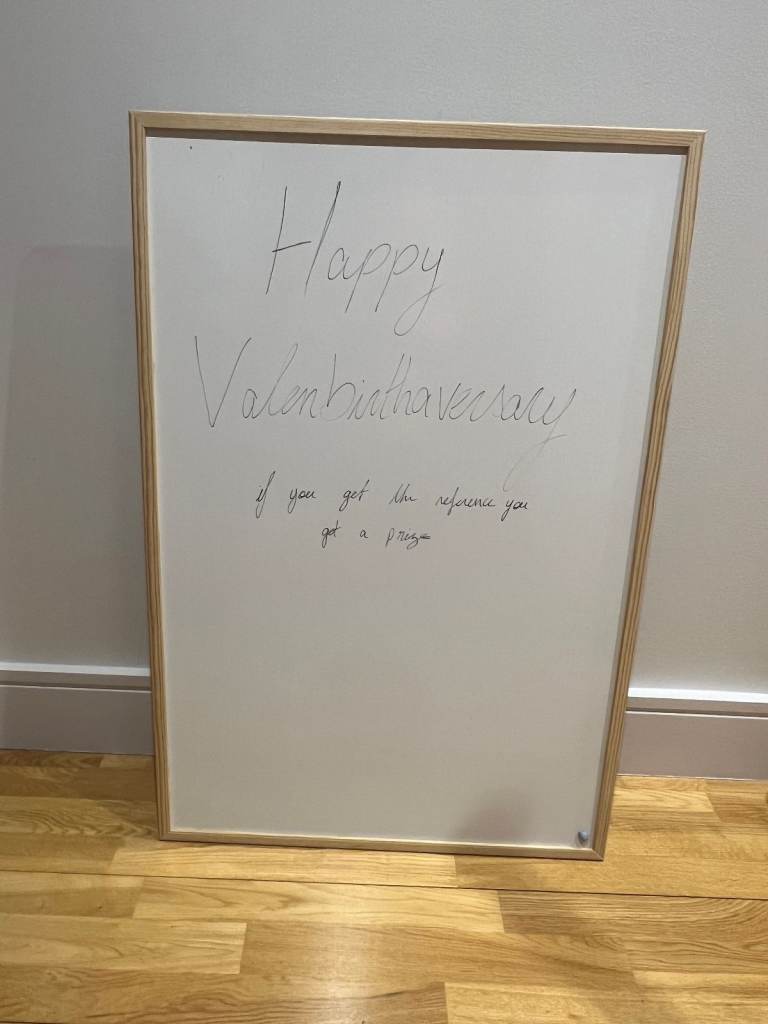 Happy
Valenbirthaversary
if you get the reference you
get a prize